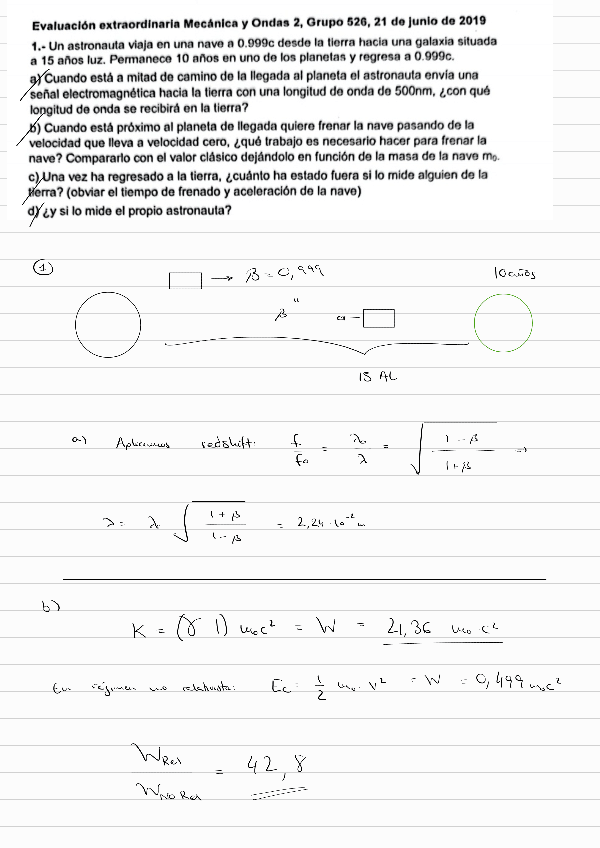 Evaluación extraordinaria Mecánica y Ondas 2, Grupo 526, 21 de junio de 2019
1.- Un astronauta viaja en una nave a 0.999c desde la tierra hacia una galaxia situada
a 15 años luz. Permanece 10 años en uno de los planetas y regresa a 0.999c.
a) Cuando está a mitad de camino de la llegada al planeta el astronauta envía una
señal electromagnética hacia la tierra con una longitud de onda de 500nm, ¿con qué
longitud de onda se recibirá en la tierra?
b) Cuando está próximo al planeta de llegada quiere frenar la nave pasando de la
velocidad que lleva a velocidad cero, ¿qué trabajo es necesario hacer para frenar la
nave? Compararlo con el valor clásico dejándolo en función de la masa de la nave m₀.
c) Una vez ha regresado a la tierra, ¿cuánto ha estado fuera si lo mide alguien de la
tierra? (obviar el tiempo de frenado y aceleración de la nave)
d) ¿y si lo mide el propio astronauta?
1
→ β = 0,999
10 años
β "
15 AL
a) Aplicamos redshift: f/f₀ = λ₀/λ = √((1-β)/(1+β)) ⇒
λ = λ √((1+β)/(1-β)) = 2,24·10⁻² m
b)
K = (γ 1) m₀c² = W = 21,36 m₀c²
En régimen no relativista: Ec: 1/2 m₀·v² = W = 0,499 m₀c²
W Rel / W No Rel = 42,8